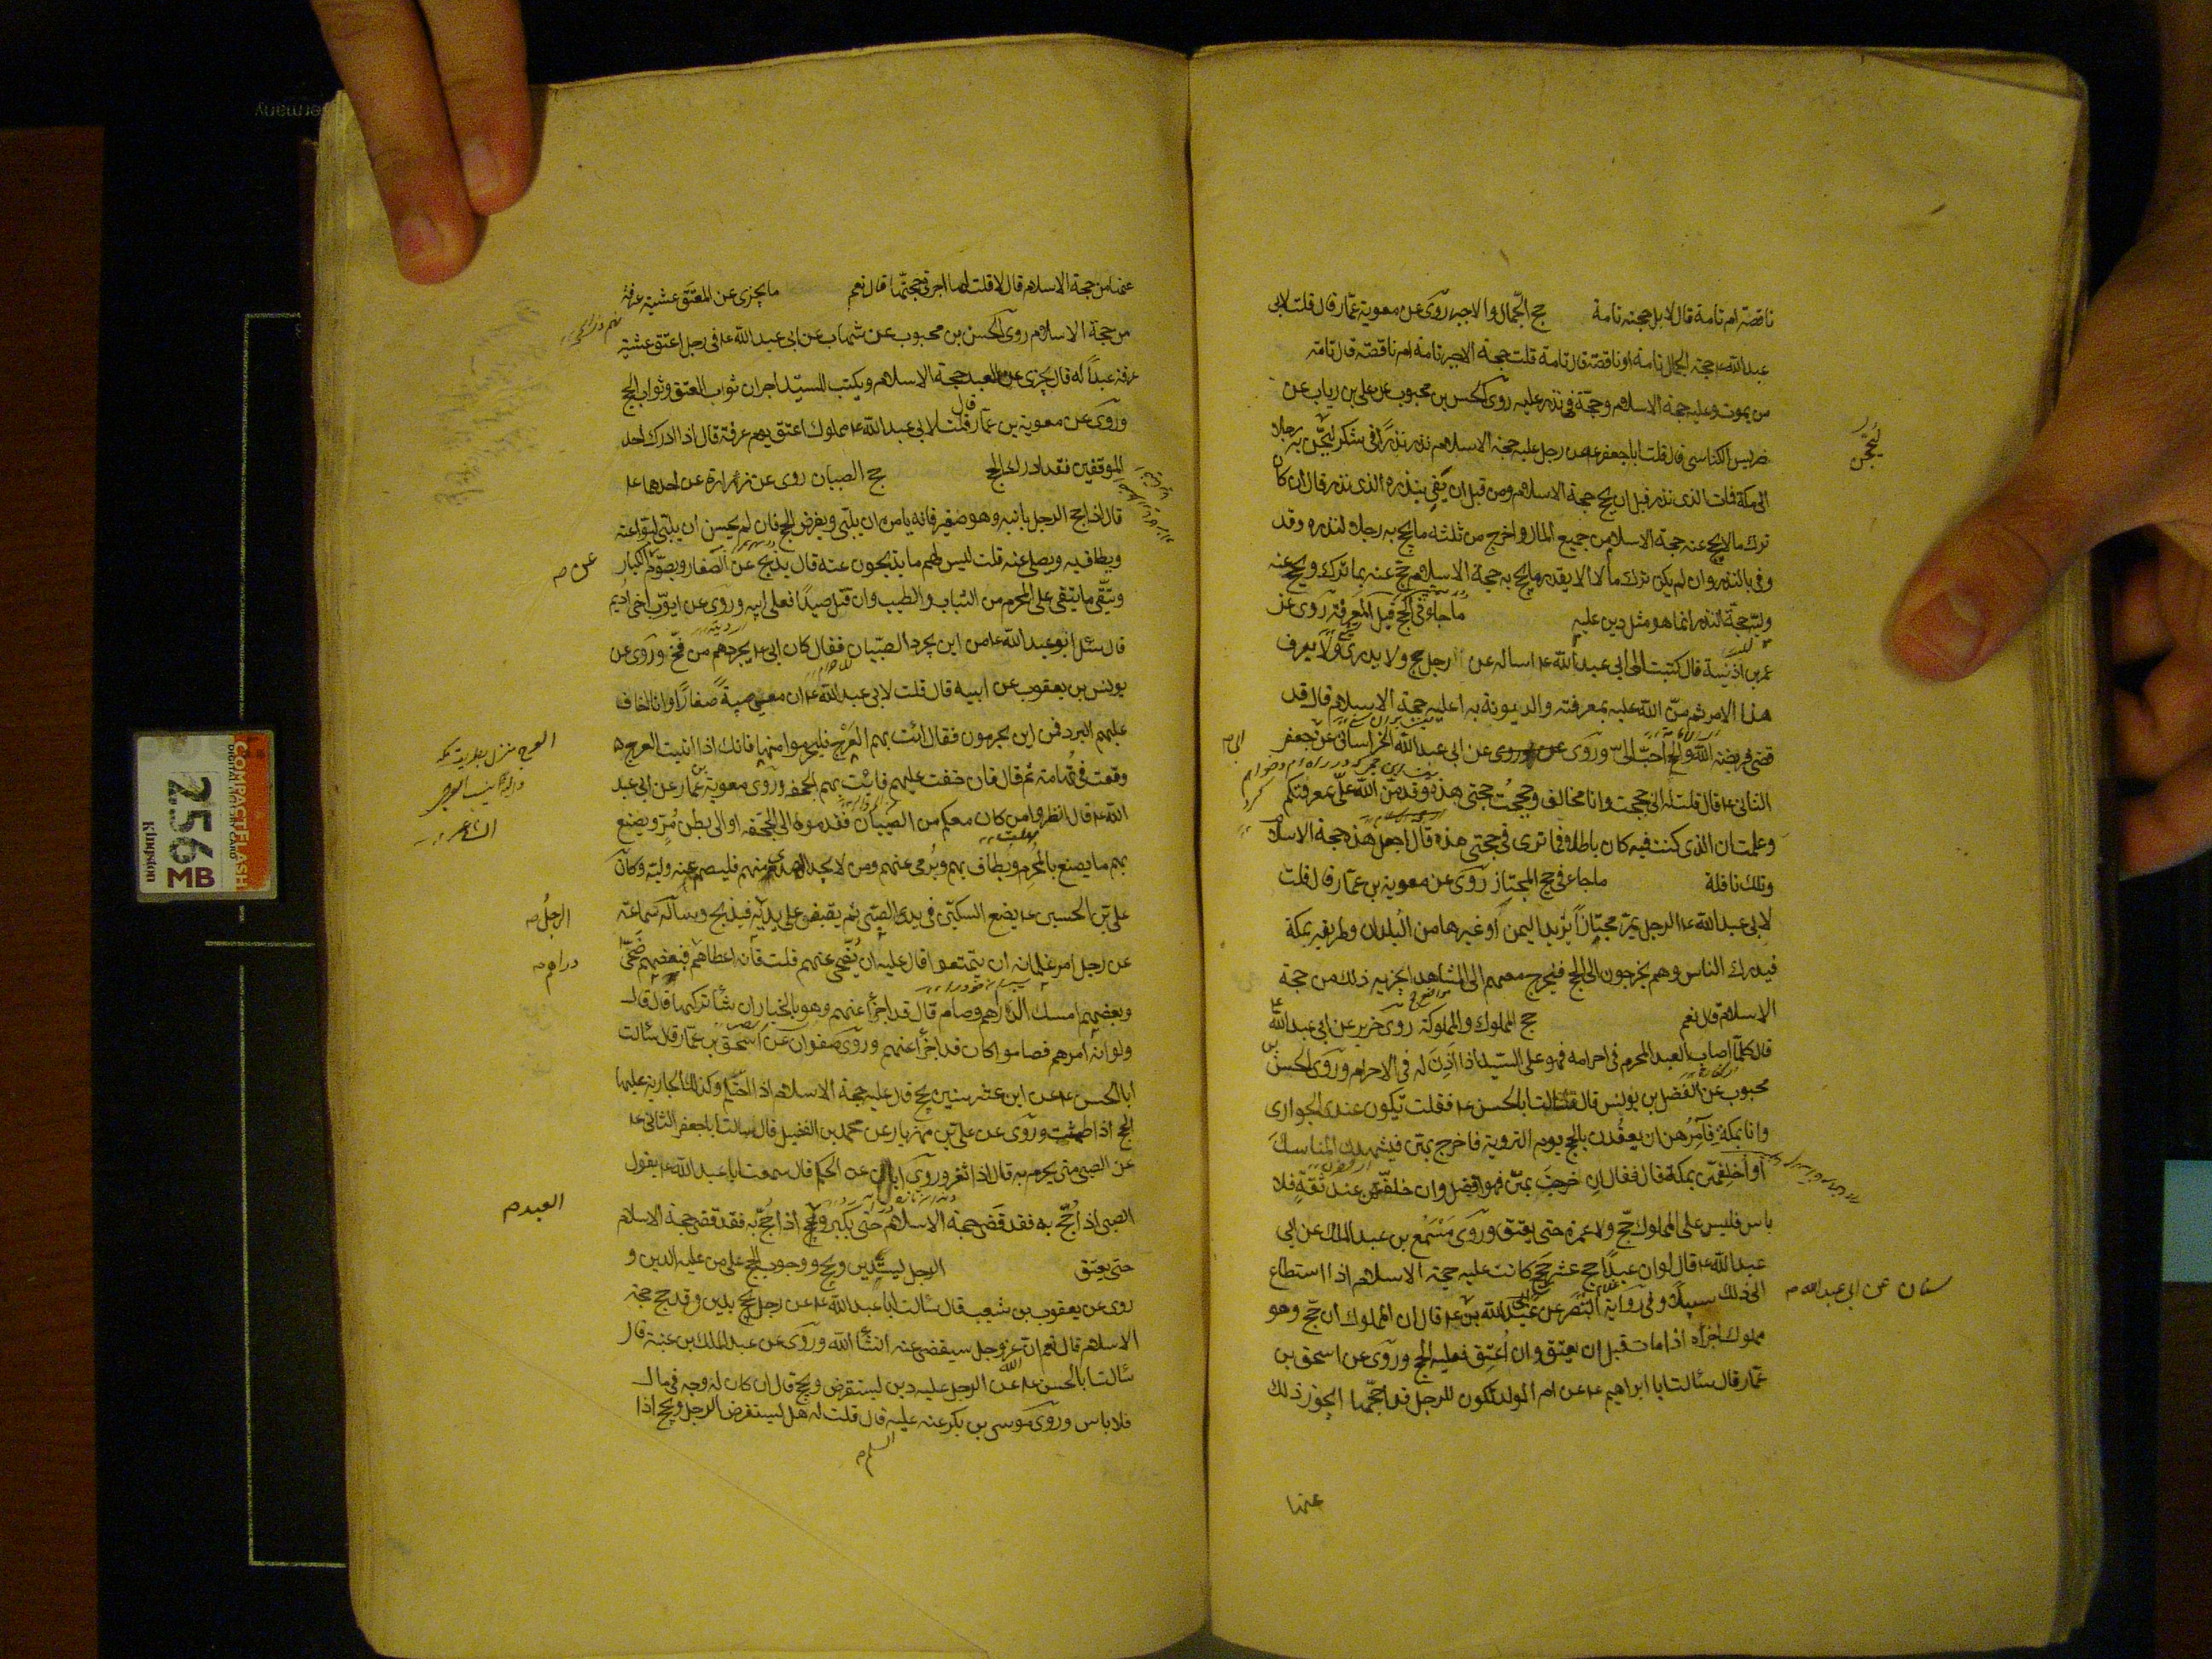 ناقصة ام تامة قال لا بل حجته تامة حج الجمال والاجير روى عن معوية عمار قال قلت لابى
عبد الله ع حجة الجمال تامة او ناقصة قال تامة قلت حجة الاجير تامة ام ناقصة قال تامة
من يموت وعليه حجة الاسلام وحجة فى نذر عليه روى الحسن بن محبوب عن على بن رياب عن
ضريس الكناسى قال قلت ابا جعفر ع عن رجل عليه حجة الاسلام نذر نذرا فى شكر ليحجن به رجلا
ليحجن
الى مكة فمات الذى نذر قبل ان يحج حجة الاسلام ومن قبل ان يفى بنذره الذى نذر قال ان كان
ترك مالا يحج عنه حجة الاسلام من جميع المال واخرج من ثلثه ما يحج به رجلا لنذره وقد
وفى بالنذر وان لم يكن ترك مالا الا بقدر ما يحج به حجة الاسلام حج عنه بما ترك ويحج عنه
وليه حجة النذر انما هو مثل دين عليه ما جاء فى الحج قبل المعرفة روى عن
عمر بن اذينة قال كتبت الى ابى عبد الله ع اساله عن رجل حج ولا يدرى ولا يعرف
هذا الامر ثم من الله عليه بمعرفته والدينونة به اعليه حجة الاسلام قال قد
قضى فريضة الله والحج احب الى وروى عن ابى عبد الله الخراسانى عن جعفر
ابى
الثانى ع قال قلت له انى حججت وانا مخالف وحججت حجتى هذه وقد من الله على بمعرفتكم
وعلمت ان الذى كنت فيه كان باطلا فما ترى فى حجتى هذه قال اجعل هذه حجة الاسلا
وتلك نافلة ما جاء فى حج المجتاز روى عن معوية بن عمار قال قلت
لابى عبد الله ع الرجل يمر مجتازا يريد اليمن او غيرها من البلدان وطريقه بمكة
فيدرك الناس وهم يخرجون الى الحج فيخرج معهم الى المشاهد ايجزيه ذلك من حجة
الاسلام قال نعم حج المملوك والمملوكة روى حريز عن ابى عبد الله ع
قال كلما اصاب العبد المحرم فى احرامه فهو على السيد اذا اذن له فى الاحرام وروى الحسن بن
محبوب عن الفضل بن يونس قال سالت ابا الحسن ع فقلت يكون عندى الجوارى
وانا بمكة فآمرهن ان يعقدن بالحج يوم التروية فاخرج بهن فيشهدن المناسك
او اخلفهن بمكة قال فقال ان خرجت بهن فهو افضل وان خلفتهن عند ثقة فلا
باس فليس على المملوك حج ولا عمرة حتى يعتق وروى مسمع بن عبد الملك عن ابى
عبد الله ع قال لو ان عبدا حج عشر حجج كانت عليه حجة الاسلام اذا استطاع
الى ذلك سبيلا وفى رواية النضر عن عبد الله بن ع قال ان المملوك ان حج وهو
سنان عن ابى عبد الله
مملوك اجزاه اذا مات قبل ان يعتق وان اعتق فعليه الحج وروى عن اسحق بن
عمار قال سئالت ابا ابراهيم ع عن ام الولد تكون للرجل قد احجها ايجوز ذلك
عنها
عنها من حجة الاسلام قال لا قلت لها اجر فى حجتها قال نعم ما يجزى عن المعتق عشية عرفة
من حجة الاسلام روى الحسن بن محبوب عن شهاب عن ابى عبد الله ع فى رجل اعتق عشية
عرفة عبدا له قال يجزى عن العبد حجة الاسلام ويكتب للسيد اجران ثواب العتق وثواب الحج
وروى عن معوية بن عمار قال قلت لابى عبد الله ع مملوك اعتق يوم عرفة قال اذا ادرك احد
الموقفين فقد ادرك الحج حج الصبيان روى عن زرارة عن احدهما ع
قال اذا حج الرجل بابنه وهو صغير فانه يامره ان يلبى ويفرض الحج فان لم يحسن ان يلبى لبوا عنه
ويطاف به ويصلى عنه قلت ليس لهم ما يذبحون عنه قال يذبح عن الصغار ويصوم الكبار
عن
ويتقى ما يتقى على المحرم من الثياب والطيب وان قتل صيدا فعلى ابيه وروى عن ايوب اخى اديم
قال سئل ابو عبد الله ع من اين يجرد الصبيان فقال كان ابى ع يجردهم من فخ وروى عن
يونس بن يعقوب عن ابيه قال قلت لابى عبد الله ع ان معى صبية صغارا وانا اخاف
عليهم البرد فمن اين يحرمون فقال ائت بهم العرج فليحرموا منها فانك اذا اتيت العرج
العرج منزل بطريق مكة
وقعت فى تهامة ثم قال فان خفت عليهم فائت بهم الجحفة وروى معوية بن عمار عن ابى عبد
الله ع قال انظروا من كان معكم من الصبيان فقدموه الى الجحفة او الى بطن مر ويصنع
الشاعر
بهم ما يصنع بالمحرم ويطاف بهم ويرمى عنهم ومن لا يجد الهدى منهم فليصم عنه وليه وكان
على بن الحسين ع يضع السكين فى يدى الصبى ثم يقبض على يديه فيذبح وساله سماعة
الرجل
عن رجل امر غلمانه ان يتمتعوا قال عليه ان يضحى عنهم قلت فانه اعطاهم فبعضهم ضحى
دراهم
وبعضهم امسك الدراهم وصام قال قد اجزأ عنهم وهو بالخيار ان شا تركها قال قال
ولو انه امرهم فصاموا كان قد اجزأ عنهم وروى صفوان عن اسحق بن عمار قال سئالت
ابا الحسن ع عن ابن عشر سنين يحج قال عليه حجة الاسلام اذا احتلم وكذلك الجارية عليها
الحج اذا طمثت وروى عن على بن مهزيار عن محمد بن الفضيل قال سالت ابا جعفر الثانى ع
عن الصبى متى يحرم به قال اذا ثغر وروى ابان عن الحكم قال سمعت ابا عبد الله ع يقول
الصبى اذا حج به فقد قضى حجة الاسلام حتى يكبر و اذا حج به فقد قضى حجة الاسلام
العبد
حتى يعتق الرجل يستدين ويحج ووجوب الحج على من عليه الدين و
روى عن يعقوب بن شعيب قال سئالت ابا عبد الله ع عن رجل يحج بدين وقد حج حجة
الاسلام قال نعم ان الله عز وجل سيقضى عنه انشأ الله وروى عن عبد الملك بن عتبة قال
سئالت ابا الحسن ع عن الرجل عليه دين يستقرض ويحج قال ان كان له وجه فى مال
فلا باس وروى موسى بن بكر عنه عليه قال قلت له هل يستقرض الرجل ويحج اذا
السلم
COMPACTFLASH
256 MB
Kingston